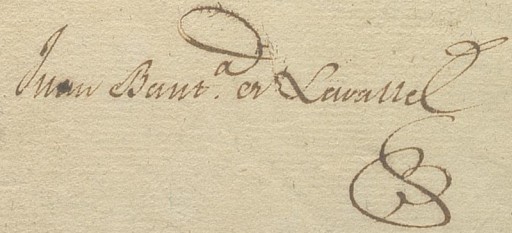 Juan Baut.ª de Lavalle